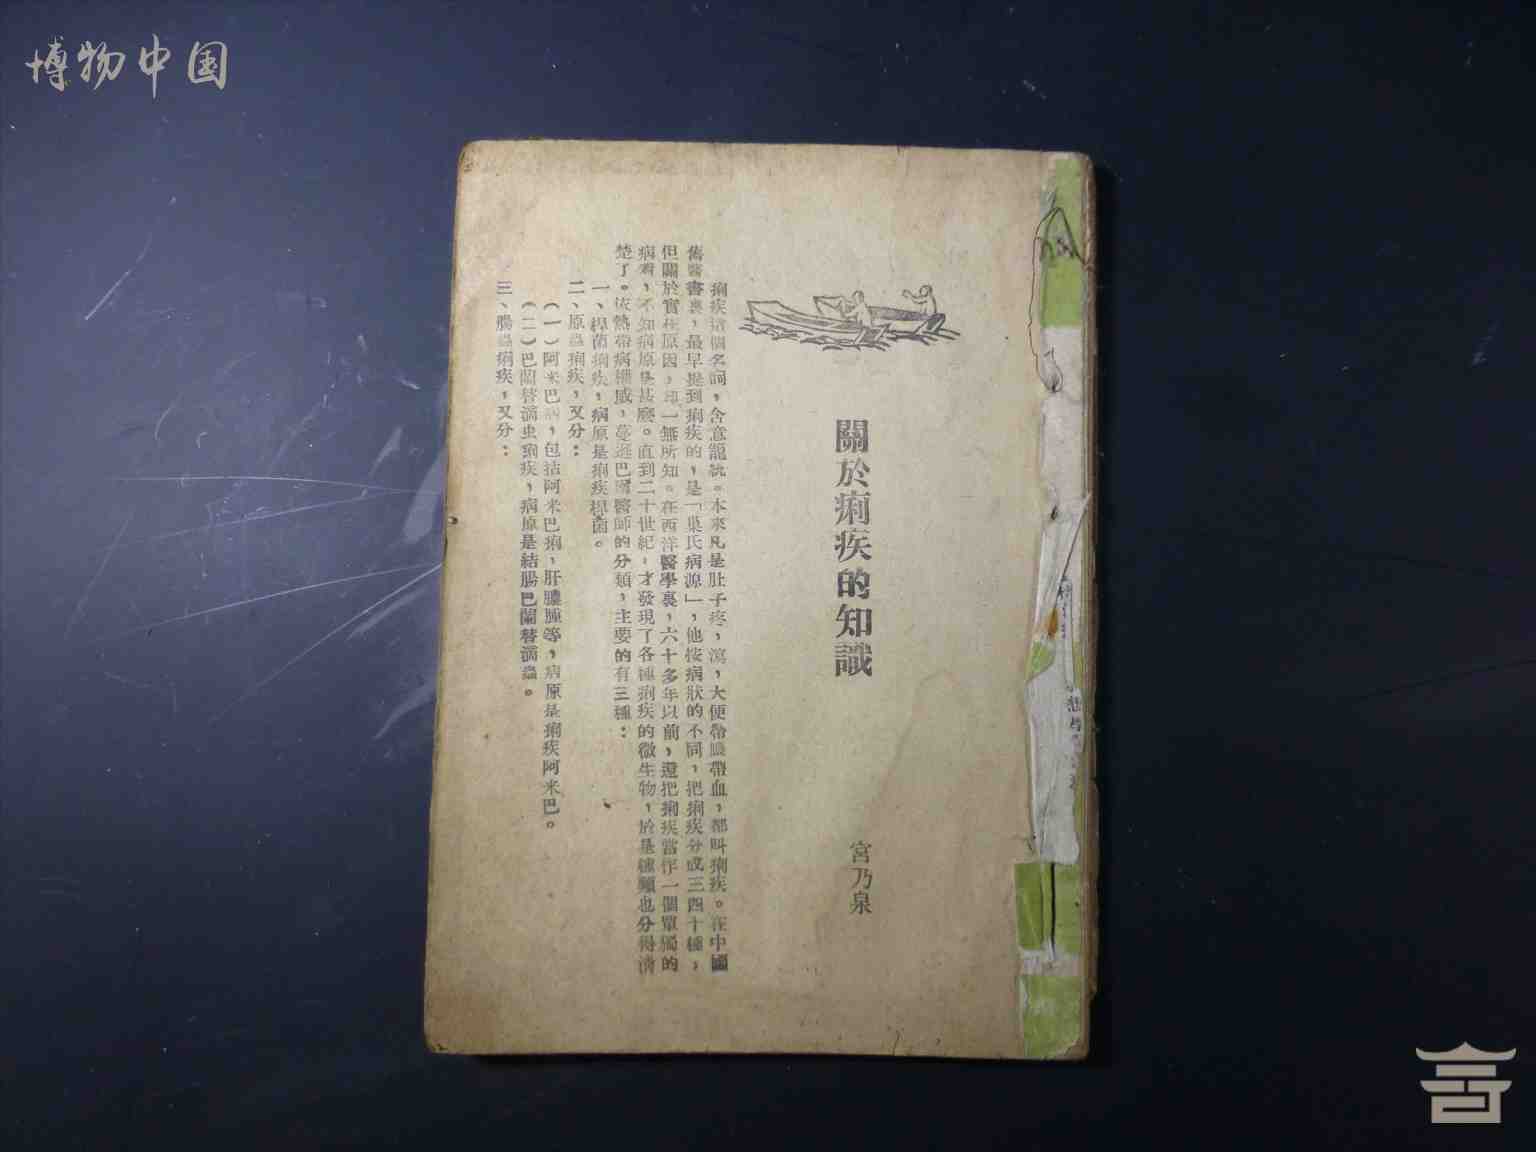 博物中国
關於痢疾的知識
宮乃泉
痢疾這個名詞，含意籠統。本來凡是肚子疼，瀉，大便帶膿帶血，都叫痢疾。在中國
舊醫書裏，最早提到痢疾的，是「巢氏病源」，他按病狀的不同，把痢疾分成三四十種，
但關於實在原因，却一無所知。在西洋醫學裏，六十多年以前，還把痢疾當作一個單獨的
病看，不知病原是甚麼。直到二十世紀，才發現了各種痢疾的微生物，於是種類也分得清
楚了。依熱帶病權威，蔓遜巴爾醫師的分類，主要的有三種：
一、桿菌痢疾，病原是痢疾桿菌。
二、原蟲痢疾，又分：
（一）阿米巴病，包括阿米巴痢，肝膿腫等，病原是痢疾阿米巴。
（二）巴蘭替滴虫痢疾，病原是結腸巴蘭替滴蟲。
三、腸蟲痢疾，又分：